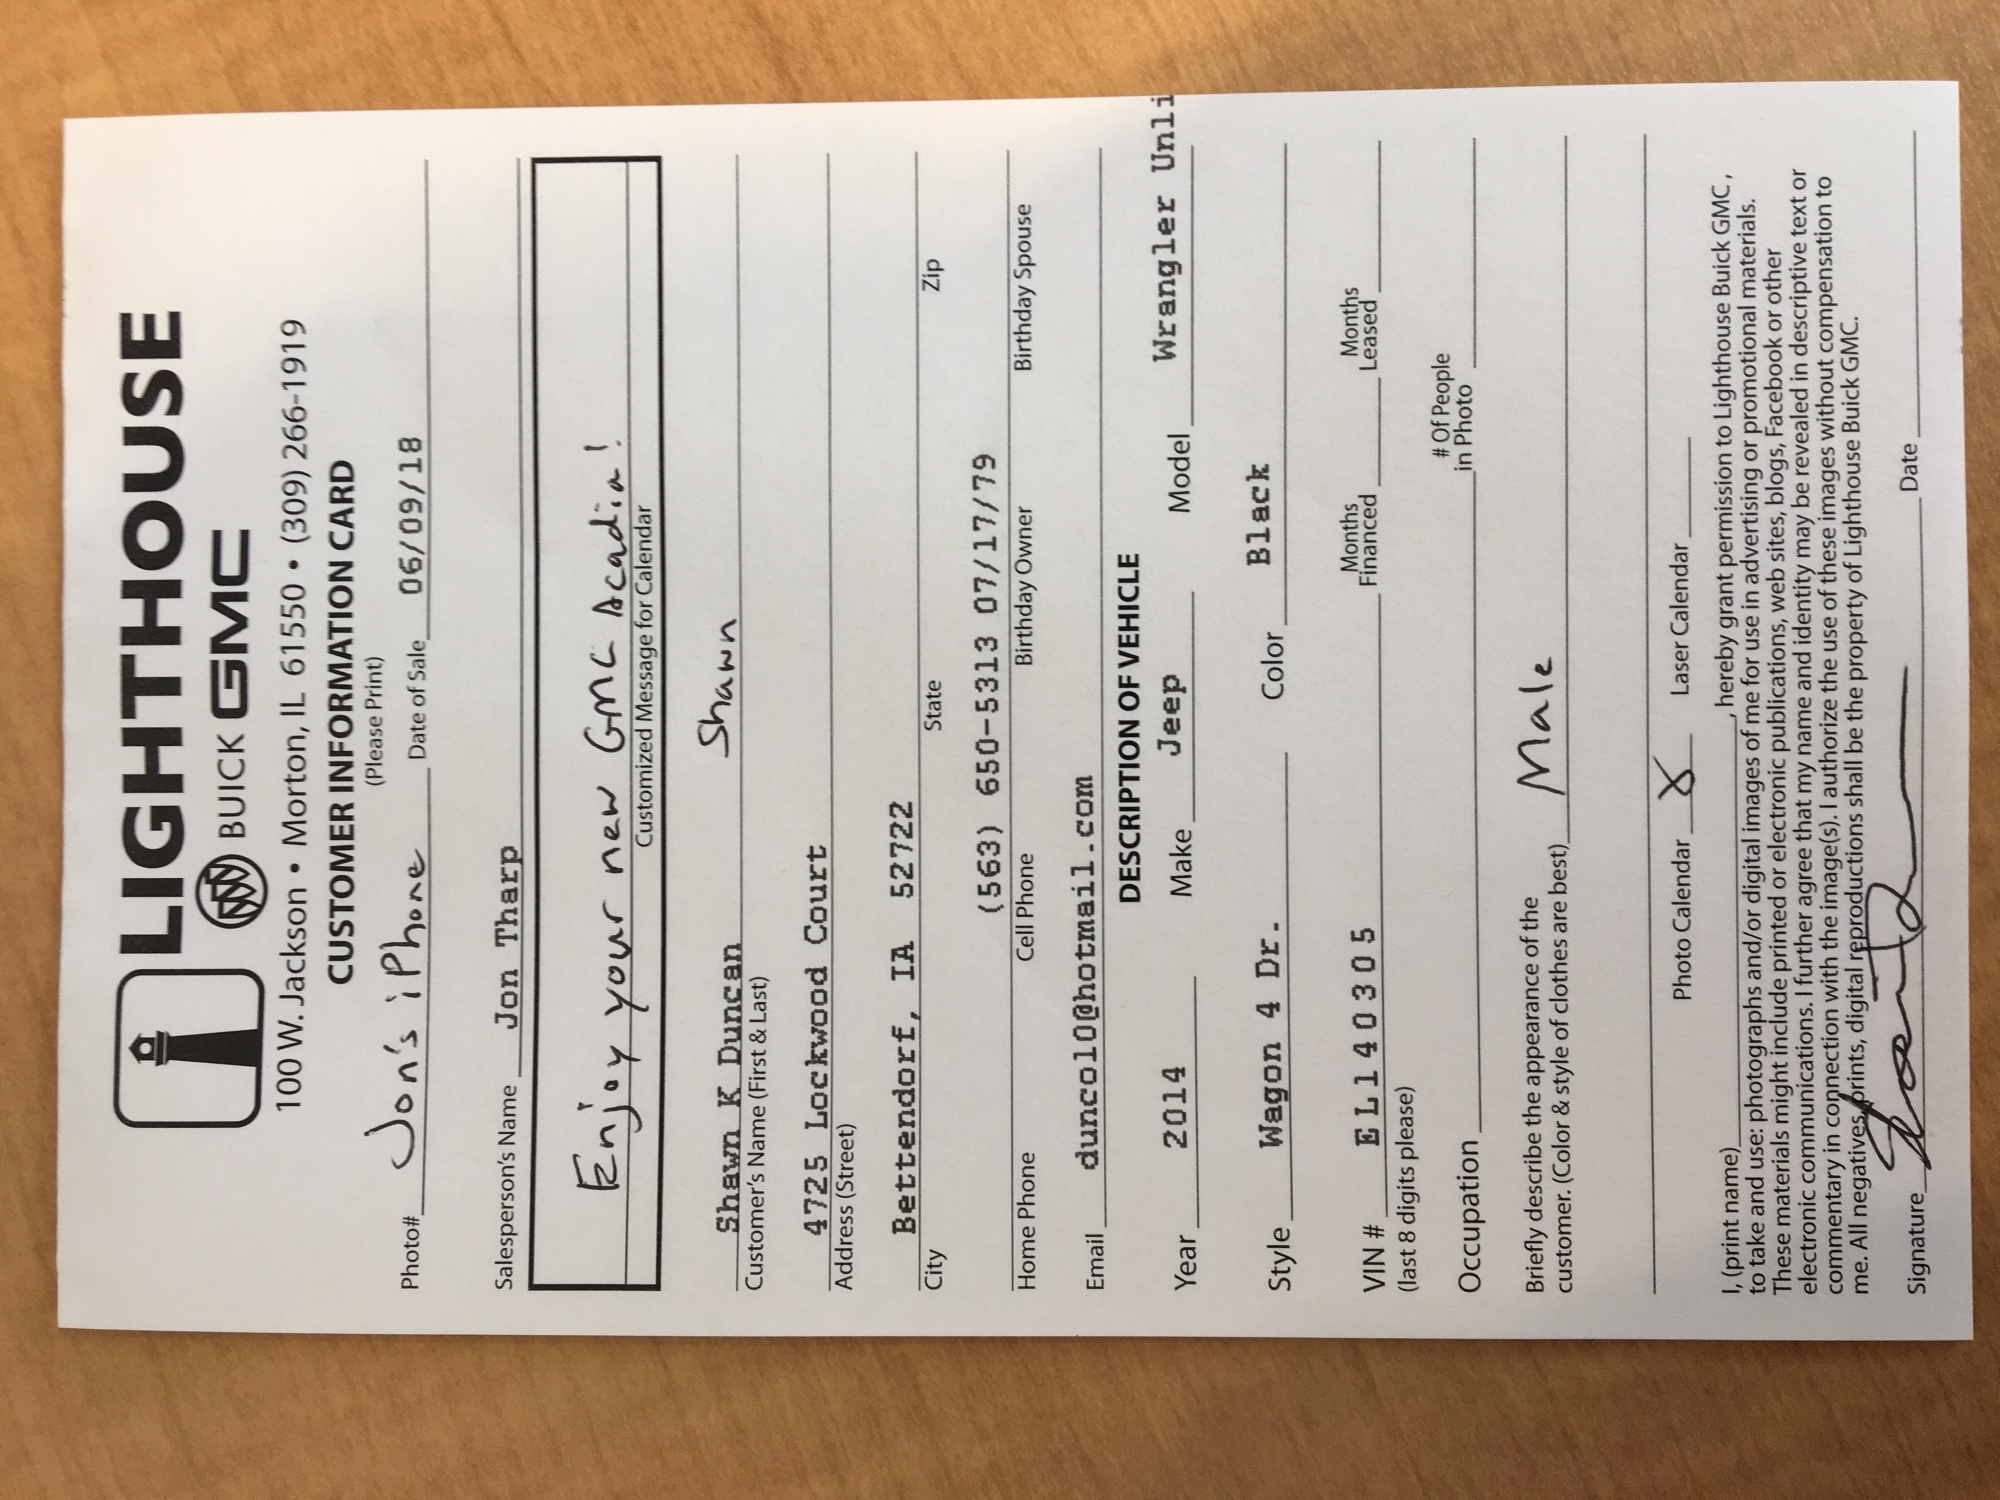 LIGHTHOUSE
BUICK GMC
100 W. Jackson • Morton, IL 61550 • (309) 266-1919
CUSTOMER INFORMATION CARD
(Please Print)
Photo# Jon's iPhone Date of Sale 06/09/18
Salesperson's Name Jon Tharp
Enjoy your new GMC Acadia!
Customized Message for Calendar
Shawn K Duncan Shawn
Customer's Name (First & Last)
4725 Lockwood Court
Address (Street)
Bettendorf, IA 52722
City State Zip
(563) 650-5313 07/17/79
Home Phone Cell Phone Birthday Owner Birthday Spouse
Email duncol0@hotmail.com
DESCRIPTION OF VEHICLE
Year 2014 Make Jeep Model Wrangler Unli
Style Wagon 4 Dr. Color Black
VIN # EL140305 Months Financed Months Leased
(last 8 digits please)
Occupation # Of People in Photo
Briefly describe the appearance of the
customer. (Color & style of clothes are best) Male
Photo Calendar X Laser Calendar
I, (print name) , hereby grant permission to Lighthouse Buick GMC ,
to take and use: photographs and/or digital images of me for use in advertising or promotional materials.
These materials might include printed or electronic publications, web sites, blogs, Facebook or other
electronic communications. I further agree that my name and identity may be revealed in descriptive text or
commentary in connection with the image(s). I authorize the use of these images without compensation to
me. All negatives, prints, digital reproductions shall be the property of Lighthouse Buick GMC.
Signature Date